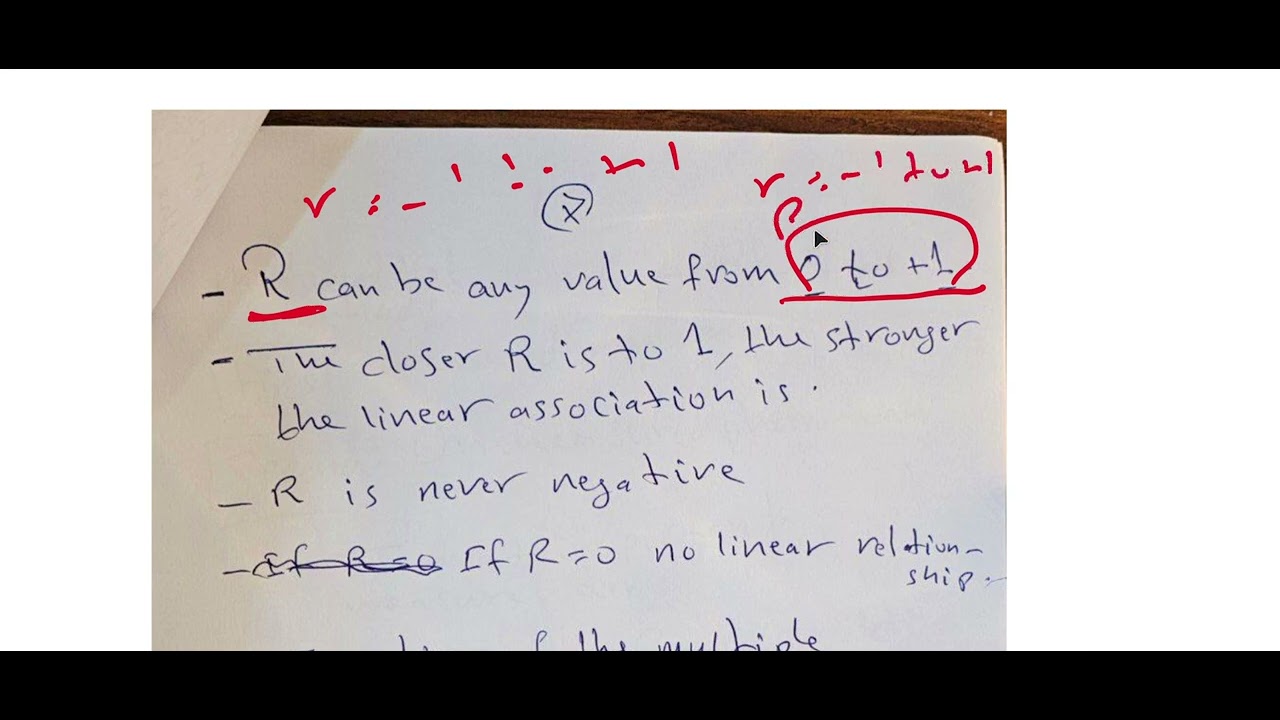 r : -1 to +1
r : -1 to +1
- R can be any value from 0 to +1
- The closer R is to 1, the stronger
the linear association is.
- R is never negative
- If R=0 If R=0 no linear relation-
ship.
of the multiple